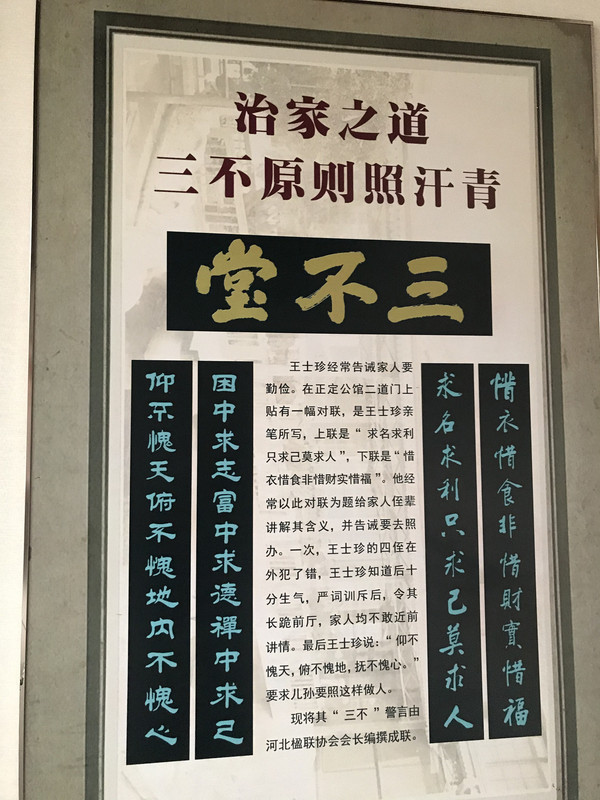 治家之道
三不原则照汗青
三不堂
惜衣惜食非惜財實惜福
求名求利只求己莫求人
王士珍经常告诫家人要
勤俭。在正定公馆二道门上
贴有一幅对联，是王士珍亲
笔所写，上联是“求名求利
只求己莫求人”，下联是“惜
衣惜食非惜财实惜福”。他经
常以此对联为题给家人侄辈
讲解其含义，并告诫要去照
办。一次，王士珍的四侄在
外犯了错，王士珍知道后十
分生气，严词训斥后，令其
长跪前厅，家人均不敢近前
讲情。最后王士珍说：“仰不
愧天，俯不愧地，抚不愧心。”
要求儿孙要照这样做人。
现将其“三不”警言由
河北楹联协会会长编撰成联。
困中求志富中求德禪中求己
仰不愧天俯不愧地内不愧心